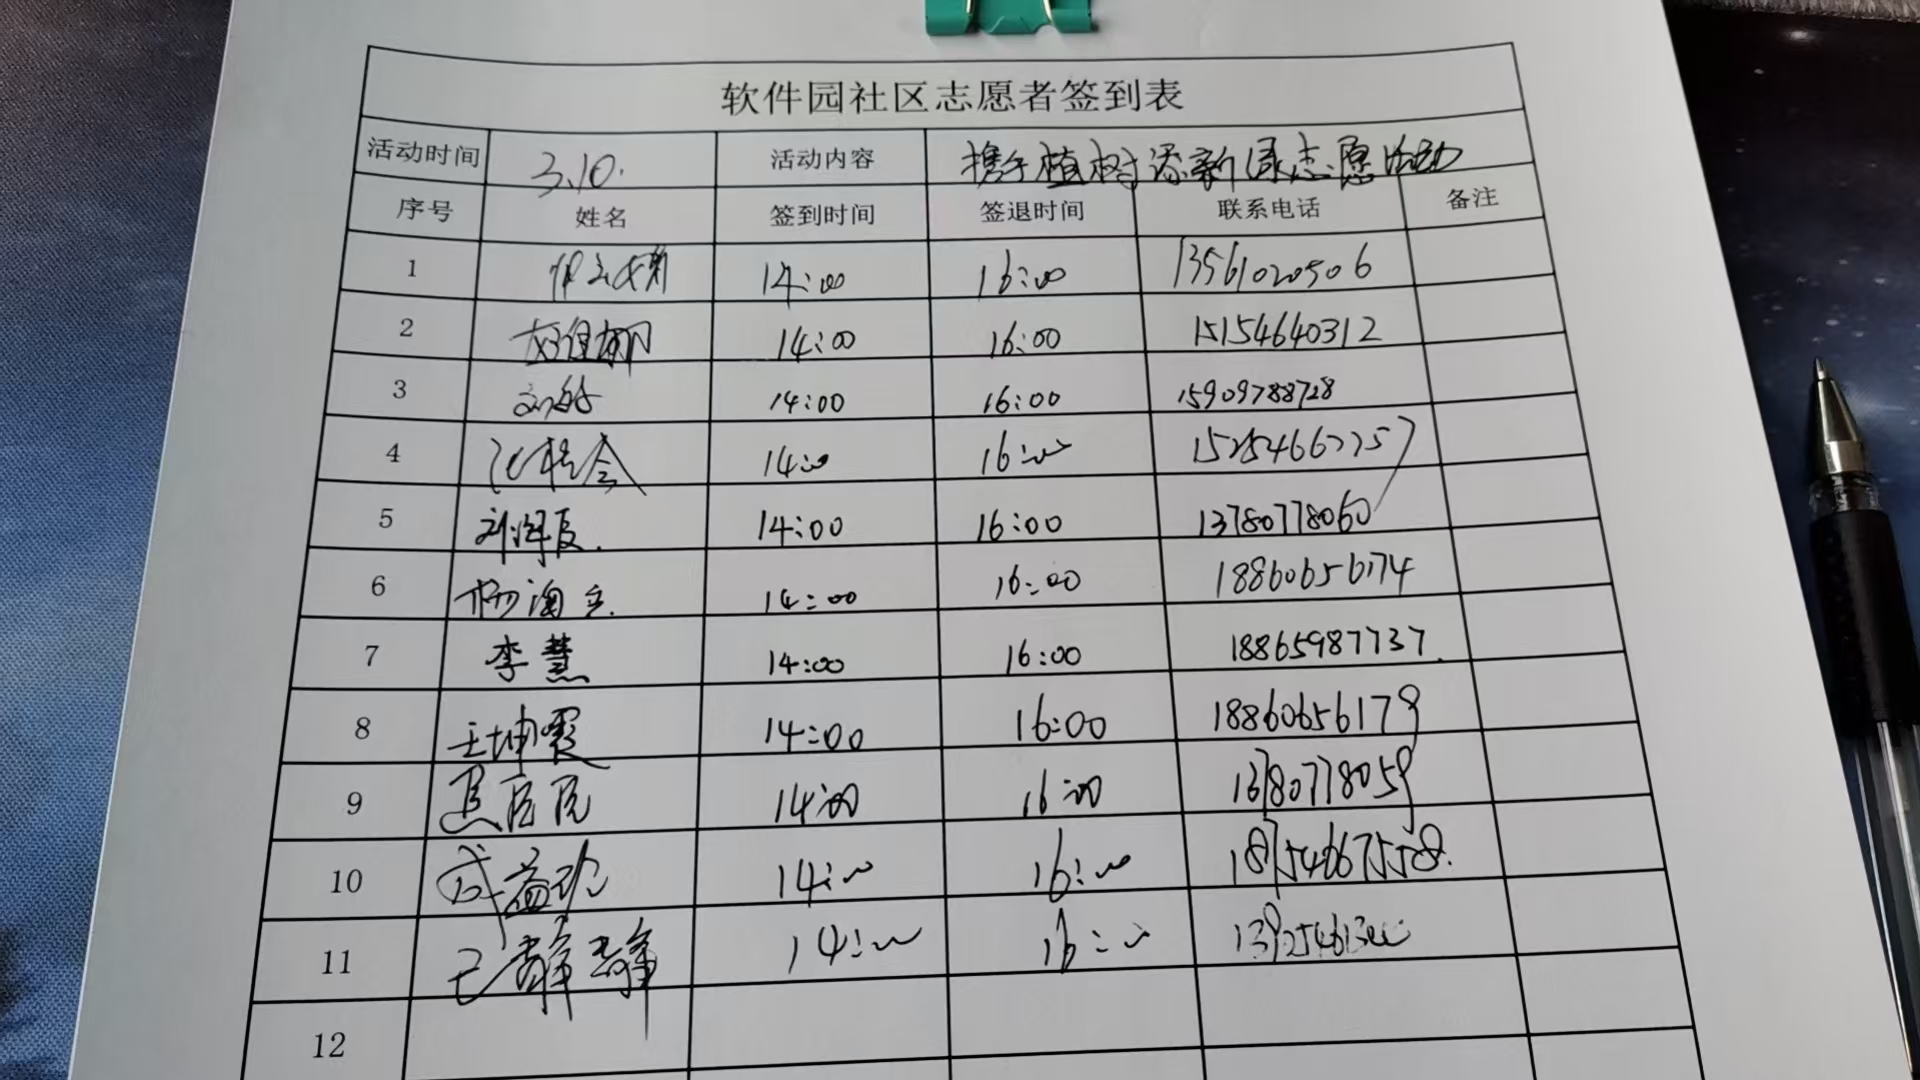 软件园社区志愿者签到表
活动时间 3.10. 活动内容 携手植树添新绿志愿活动
序号 姓名 签到时间 签退时间 联系电话 备注
1 14:00 16:00 13561020506
2 14:00 16:00 15154640312
3 14:00 16:00 15909788728
4 14:00 16:00
5 14:00 16:00 13780778060
6 14:00 16:00 18860656174
7 李慧 14:00 16:00 18865987737.
8 王坤霞 14:00 16:00 18860656179
9 14:00 16:00 13780778059
10 14:00 16:00 18754667558.
11 14:00 16:00
12